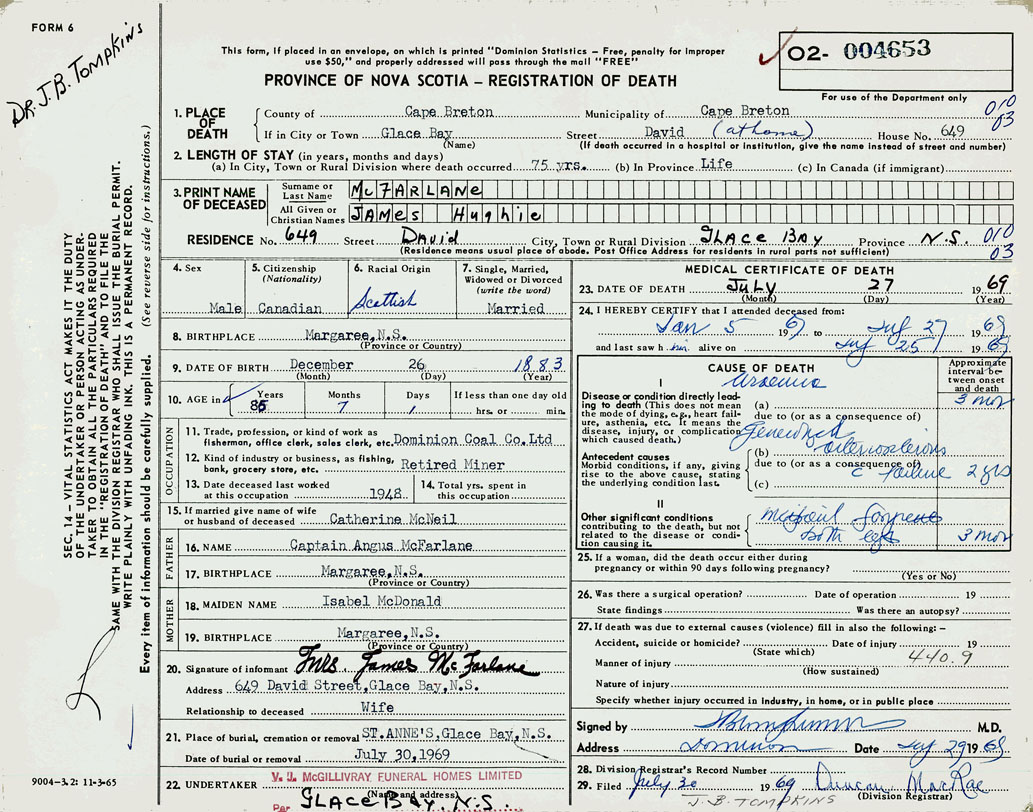 FORM 6
DR. J.B. TOMPKINS
This form, if placed in an envelope, on which is printed "Dominion Statistics – Free, penalty for improper
use $50," and properly addressed will pass through the mail "FREE"
PROVINCE OF NOVA SCOTIA – REGISTRATION OF DEATH
O2- 004653
For use of the Department only
010
03
1. PLACE OF DEATH
County of Cape Breton Municipality of Cape Breton
If in City or Town Glace Bay Street David (at home) House No. 649
(Name) (If death occurred in a hospital or institution, give the name instead of street and number)
2. LENGTH OF STAY (in years, months and days)
(a) In City, Town or Rural Division where death occurred 75 yrs. (b) In Province Life (c) In Canada (if immigrant)
3. PRINT NAME OF DECEASED
Surname or Last Name McFARLANe
All Given or Christian Names JAMes Hughie
RESIDENCE No. 649 Street DAviD City, Town or Rural Division GLAce BAY Province N.S. 010
03
(Residence means usual place of abode. Post Office Address for residents in rural parts not sufficient)
4. Sex Male
5. Citizenship (Nationality) Canadian
6. Racial Origin Scottish
7. Single, Married, Widowed or Divorced (write the word) Married
8. BIRTHPLACE Margaree, N.S.
(Province or Country)
9. DATE OF BIRTH December 26 1883
(Month) (Day) (Year)
10. AGE in Years 85 Months 7 Days 1 If less than one day old hrs. or min.
OCCUPATION
11. Trade, profession, or kind of work as
fisherman, office clerk, sales clerk, etc. Dominion Coal Co.Ltd
12. Kind of industry or business, as fishing,
bank, grocery store, etc. Retired Miner
13. Date deceased last worked
at this occupation 1948.
14. Total yrs. spent in
this occupation
15. If married give name of wife
or husband of deceased Catherine McNeil
FATHER
16. NAME Captain Angus McFarlane
17. BIRTHPLACE Margaree, N.S.
(Province or Country)
MOTHER
18. MAIDEN NAME Isabel McDonald
19. BIRTHPLACE Margaree, N.S.
(Province or Country)
20. Signature of informant Mrs. James McFarlane
Address 649 David Street, Glace Bay, N.S.
Relationship to deceased Wife
21. Place of burial, cremation or removal ST.ANNE'S, Glace Bay, N.S.
Date of burial or removal July 30, 1969
22. UNDERTAKER V. J. McGILLIVRAY FUNERAL HOMES LIMITED
(Name and address)
Per GLACE BAY, N.S.
MEDICAL CERTIFICATE OF DEATH
23. DATE OF DEATH July 27 1969
(Month) (Day) (Year)
24. I HEREBY CERTIFY that I attended deceased from:
Jan 5 19 to July 27 1969
and last saw h im alive on July 25 1969
CAUSE OF DEATH
Approximate interval between onset and death
I
Disease or condition directly leading to death (This does not mean the mode of dying, e.g., heart failure, asthenia, etc. It means the disease, injury, or complication which caused death.)
(a) Uraemia 3 mos
due to (or as a consequence of)
Antecedent causes
Morbid conditions, if any, giving rise to the above cause, stating the underlying condition last.
(b) Generalized
due to (or as a consequence of)
(c) failure 2 yrs
II
Other significant conditions contributing to the death, but not related to the disease or condition causing it.
both legs 3 mos
25. If a woman, did the death occur either during
pregnancy or within 90 days following pregnancy?
(Yes or No)
26. Was there a surgical operation? Date of operation 19
State findings Was there an autopsy?
27. If death was due to external causes (violence) fill in also the following: –
Accident, suicide or homicide? Date of injury 19
(State which) 440.9
Manner of injury
(How sustained)
Nature of injury
Specify whether injury occurred in industry, in home, or in public place
Signed by M.D.
Address Dominion Date July 29 1969
28. Division Registrar's Record Number
29. Filed July 30 1969 Duncan MacRae
(Division Registrar)
J. B. TOMPKINS
SEC. 14 – VITAL STATISTICS ACT MAKES IT THE DUTY
OF THE UNDERTAKER OR PERSON ACTING AS UNDER-
TAKER TO OBTAIN ALL THE PARTICULARS REQUIRED
IN THE "REGISTRATION OF DEATH" AND TO FILE THE
SAME WITH THE DIVISION REGISTRAR WHO SHALL ISSUE THE BURIAL PERMIT.
WRITE PLAINLY WITH UNFADING INK. THIS IS A PERMANENT RECORD.
Every item of information should be carefully supplied. (See reverse side for instructions.)
9004–3.2: 11-3-65